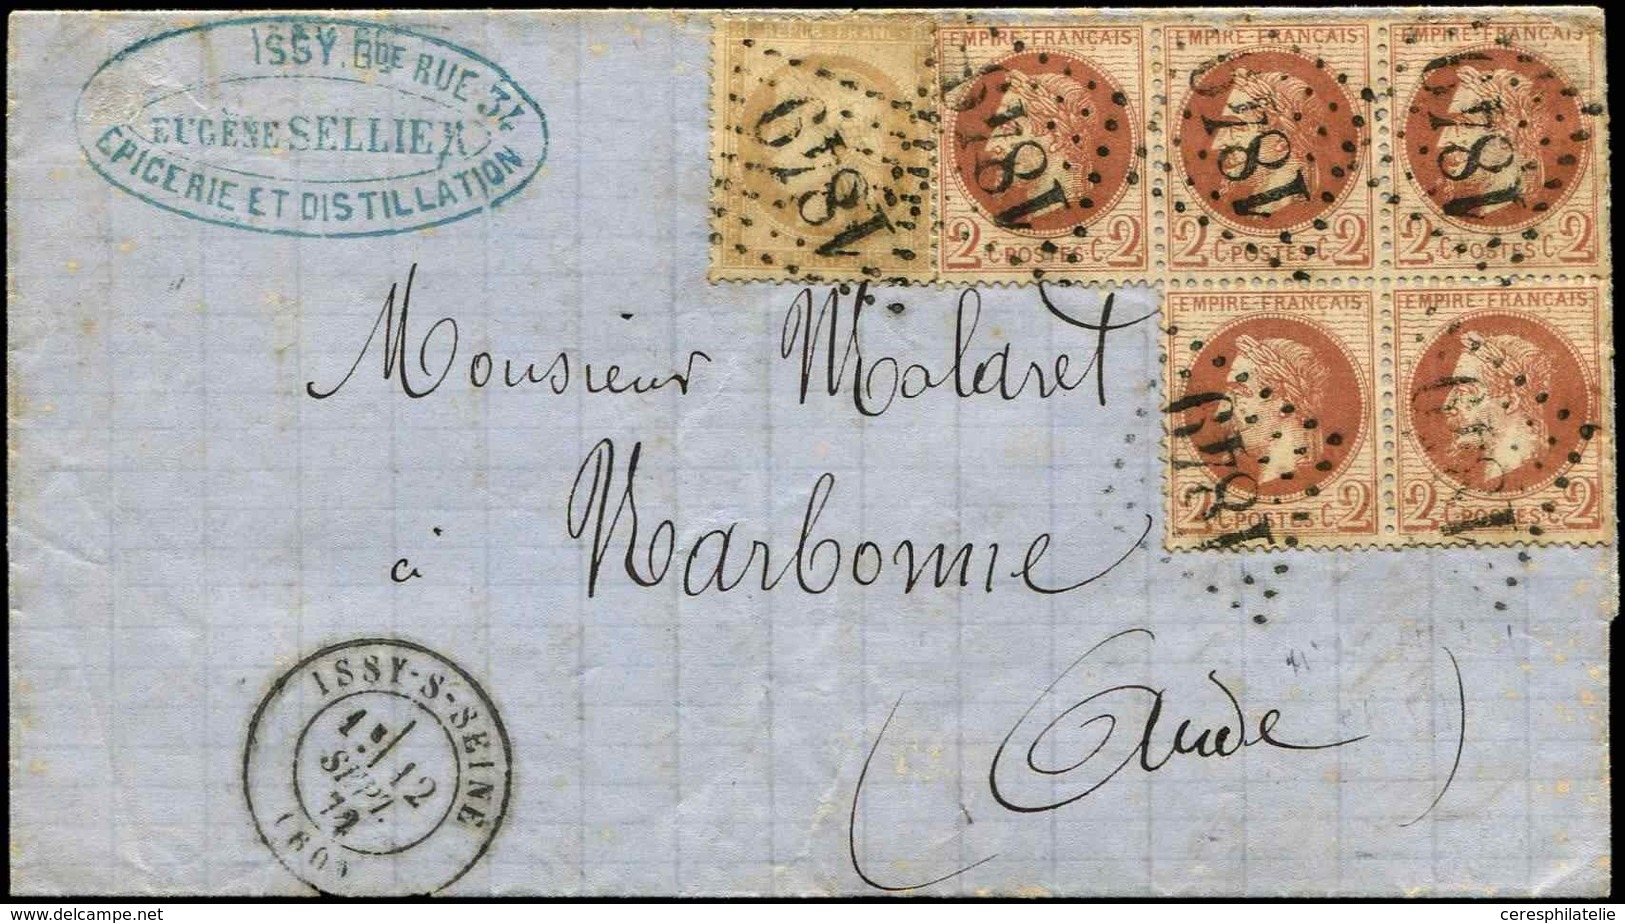 ISSY. Gde RUE 34
EUGÈNE SELLIER
EPICERIE ET DISTILLATION
REPUB FRANC
1849
EMPIRE FRANÇAIS
1849
2 C POSTES C 2
EMPIRE FRANÇAIS
1849
2 C POSTES C 2
EMPIRE FRANÇAIS
1849
2 C POSTES C 2
EMPIRE FRANÇAIS
1849
2 C POSTES C 2
EMPIRE FRANÇAIS
1849
2 C POSTES C 2
Monsieur Malaret
à Narbonne
(Aude)
ISSY-S-SEINE
12
SEPT.
(60)
www.delcampe.net
ceresphilatelie